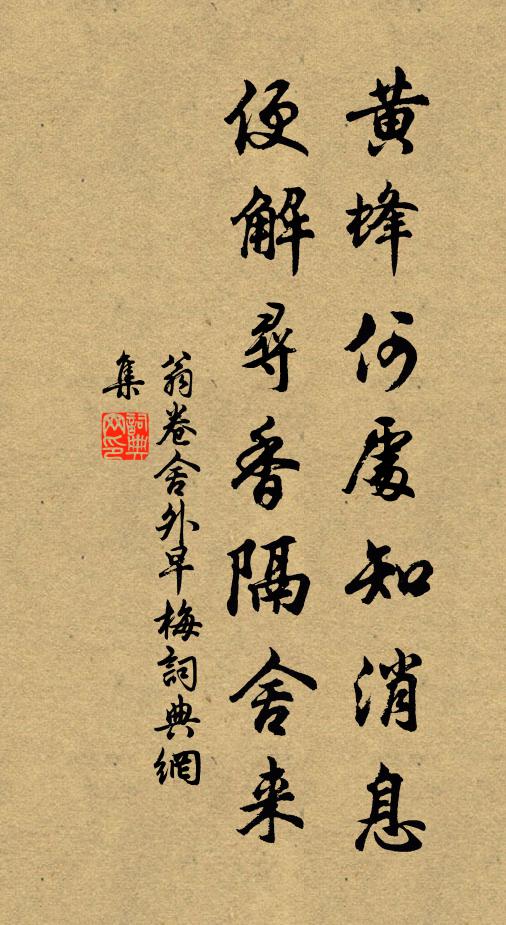 黄蜂何處知消息
便解尋香隔舍来
翁卷舍外早梅詞典網
集
詞典網印